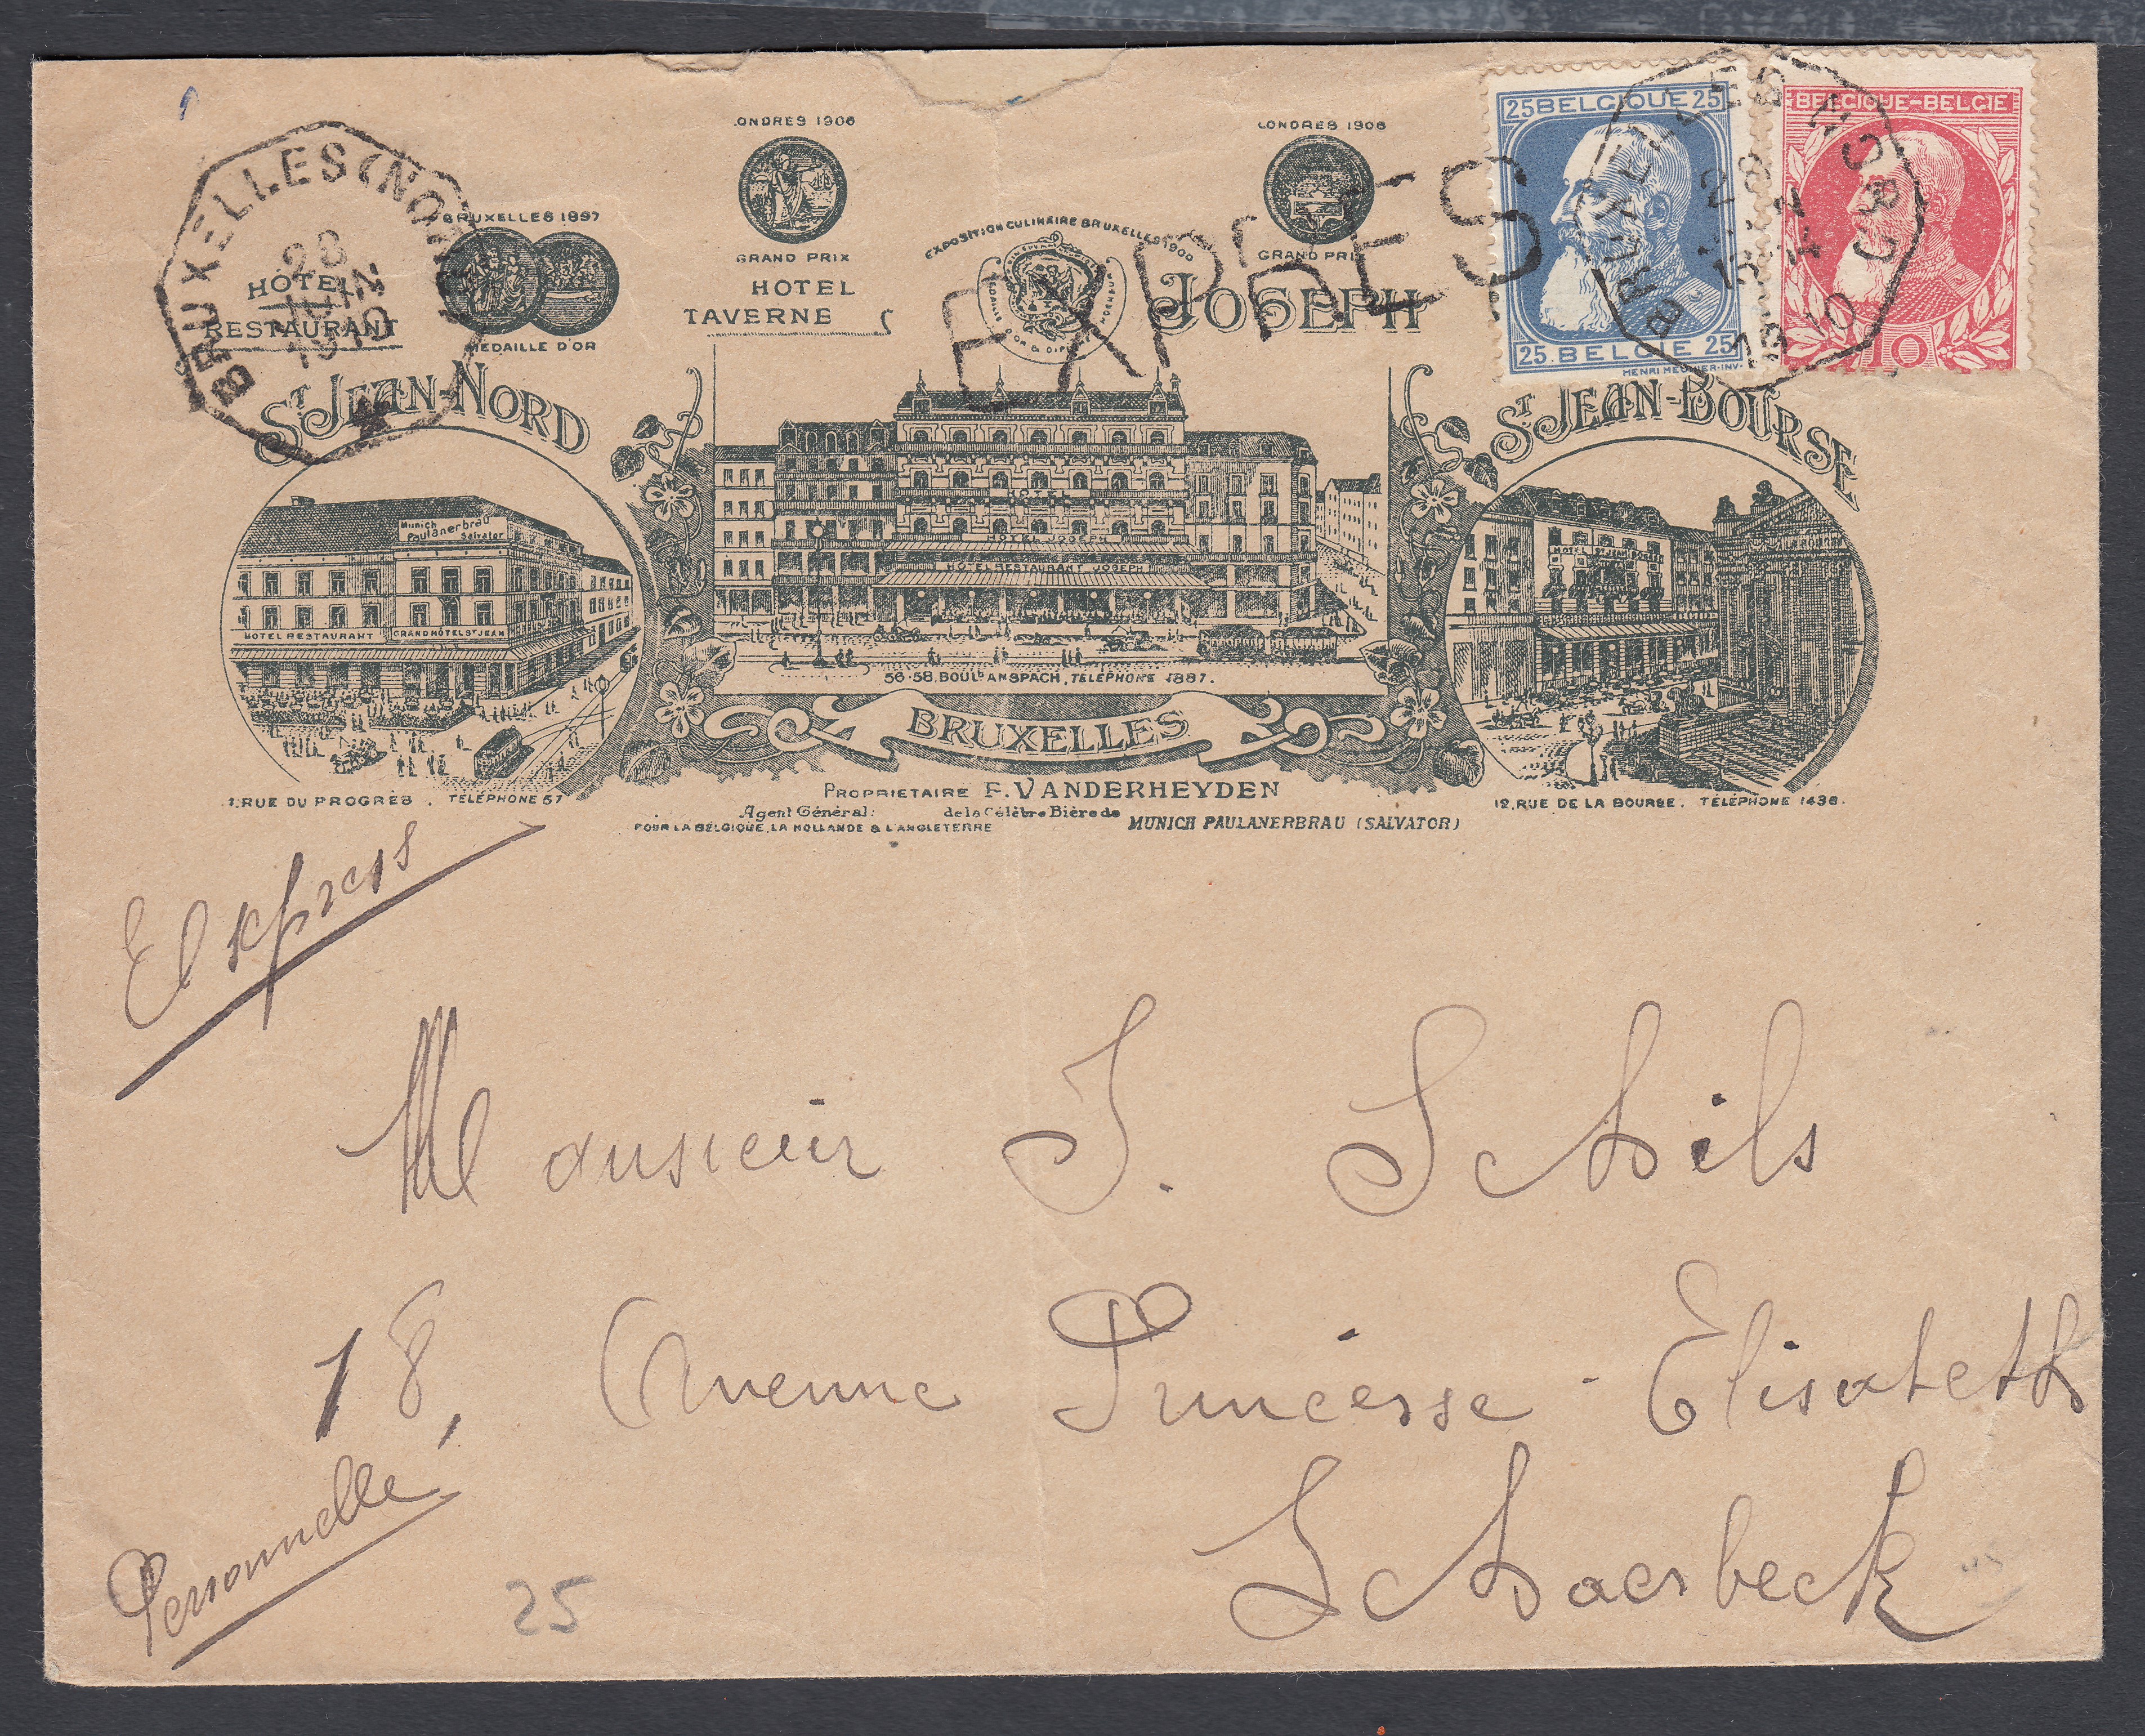 LONDRES 1906
LONDRES 1906
25 BELGIQUE 25
BELGIQUE-BELGIE
BRUXELLES (NORD)
28
JUIN
1910
BRUXELLES 1897
MEDAILLE D'OR
GRAND PRIX
EXPOSITION CULINAIRE BRUXELLES 1900
GRAND PRIX
EXPRES
HOTEL
RESTAURANT
HOTEL
TAVERNE
JOSEPH
25 BELGIE 25
HENRI MEUNIER-INV.
10
19 10
ST JEAN-NORD
ST JEAN-BOURSE
Munich
Paulanerbräu
Salvator
HOTEL
HOTEL JOSEPH
HOTEL RESTAURANT JOSEPH
HOTEL ST JEAN BOURSE
HOTEL RESTAURANT
GRAND HÔTEL ST JEAN
56-58, BOULD ANSPACH, TÉLÉPHONE 1887.
BRUXELLES
1, RUE DU PROGRÈS. TÉLÉPHONE 57
PROPRIETAIRE F. VANDERHEYDEN
12, RUE DE LA BOURSE. TÉLÉPHONE 1436.
Agent Général: de la Célèbre Bière de
POUR LA BELGIQUE, LA HOLLANDE & L'ANGLETERRE MUNICH PAULANERBRAU (SALVATOR)
Express
Monsieur J. Schils
18, Avenue Princesse-Elisabeth
Schaerbeek
Personnelle
25